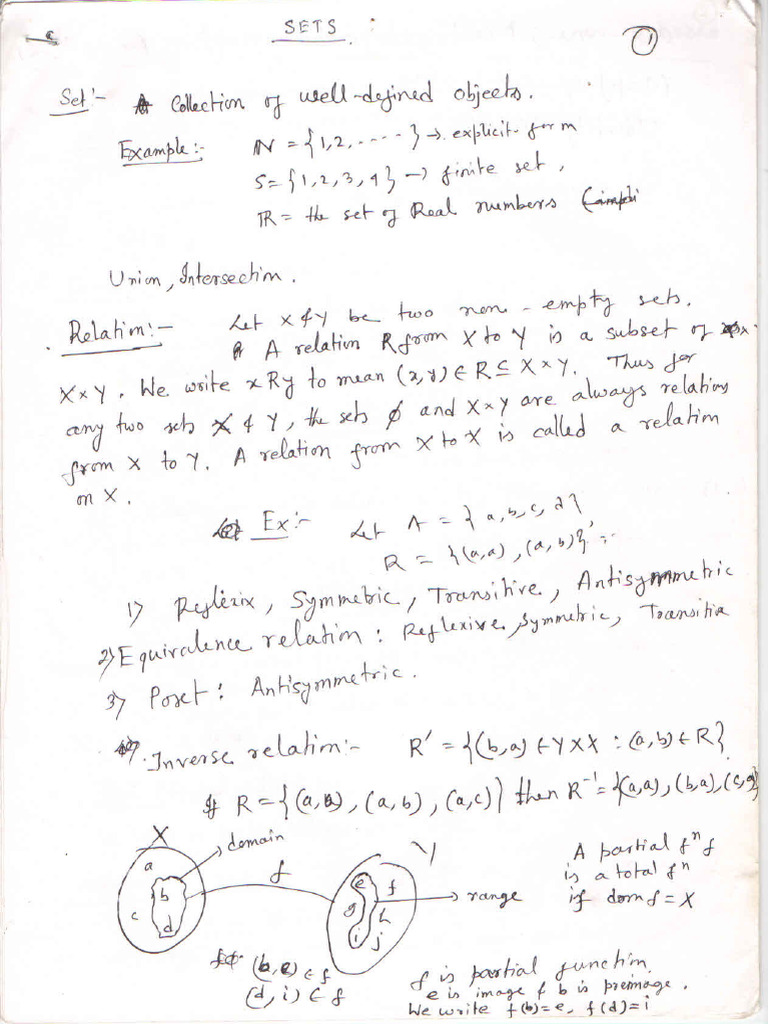 SETS
1
Set :- A Collection of well-defined objects.
Example :- ℕ = {1, 2, ----- } → explicit form
S = {1, 2, 3, 4} → finite set,
ℝ = the set of Real numbers (impli
Union, Intersection.
Relation :- Let X & Y be two non-empty sets.
A relation R from X to Y is a subset of
X×Y. We write xRy to mean (x, y) ∈ R ⊆ X×Y. Thus for
any two sets X & Y, the sets ∅ and X×Y are always relations
from X to Y. A relation from X to X is called a relation
on X.
Ex :- Let A = {a, b, c, d}
R = {(a,a), (a,b)}
1) Reflexix, Symmetric, Transitive, Antisymmetric
2) Equivalence relation : Reflexive, Symmetric, Transitive
3) Poset : Antisymmetric.
Inverse relation :- R' = {(b,a) ∈ Y×X : (a,b) ∈ R}
If R = {(a,a), (a,b), (a,c)} then R⁻¹ = {(a,a), (b,a), (c,a)}
X
domain
f
Y
a
b
c
d
e
f
g
h
i
j
range
A partial fⁿ f
is a total fⁿ
if dom f = X
(b, e) ∈ f
(d, i) ∈ f
f is partial function.
e is image & b is preimage.
We write f(b)=e, f(d)=i